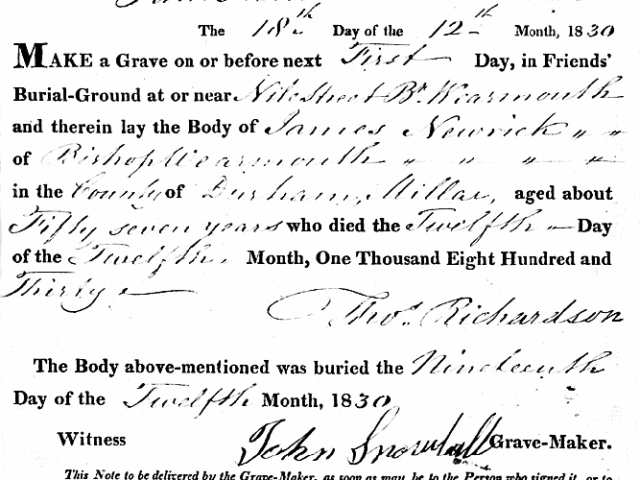 The 18th Day of the 12th Month, 1830
MAKE a Grave on or before next First Day, in Friends'
Burial-Ground at or near Nile Street Bp. Wearmouth
and therein lay the Body of James Newrick " "
of Bishop Wearmouth " " " "
in the County of Durham, Millar, aged about
Fifty seven years who died the Twelfth - Day
of the Twelfth. Month, One Thousand Eight Hundred and
Thirty
Thos. Richardson
The Body above-mentioned was buried the Nineteenth
Day of the Twelfth Month, 1830
Witness John Snowdall Grave-Maker.
This Note to be delivered by the Grave-Maker, as soon as may be to the Person who signed it, or to